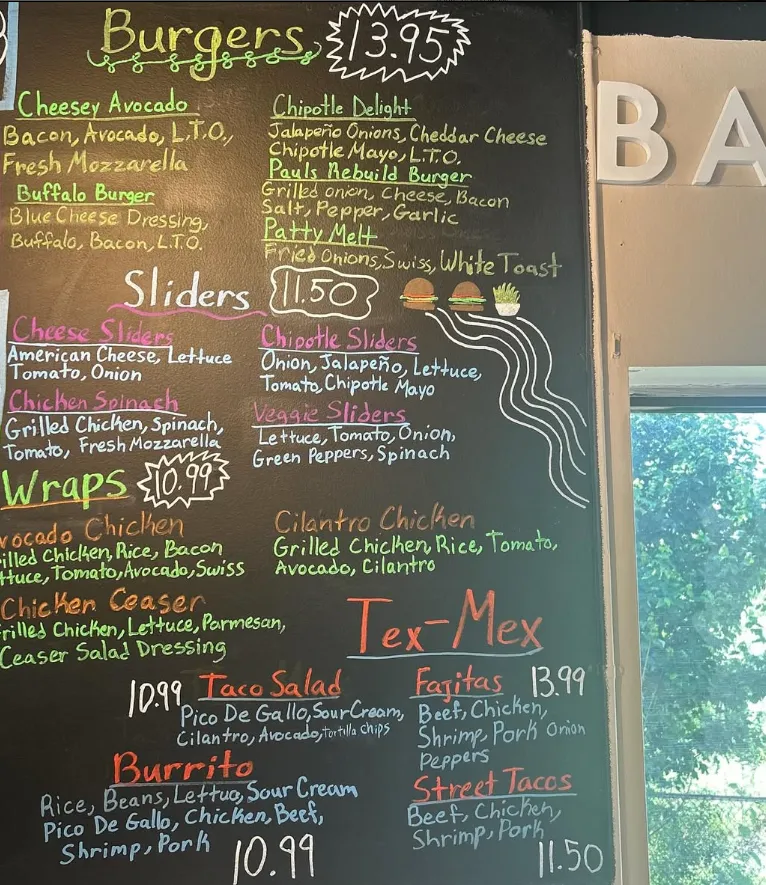 Burgers 13.95
Cheesey Avocado
Bacon, Avocado, L.T.O.,
Fresh Mozzarella
Buffalo Burger
Blue Cheese Dressing,
Buffalo, Bacon, L.T.O.
Chipotle Delight
Jalapeño Onions, Cheddar Cheese
Chipotle Mayo, L.T.O.
Pauls Rebuild Burger
Grilled onion, Cheese, Bacon
Salt, Pepper, Garlic
Patty Melt
Fried Onions, Swiss, White Toast
Sliders 11.50
Cheese Sliders
American Cheese, Lettuce
Tomato, Onion
Chicken Spinash
Grilled Chicken, Spinash,
Tomato, Fresh Mozzarella
Chipotle Sliders
Onion, Jalapeño, Lettuce,
Tomato, Chipotle Mayo
Veggie Sliders
Lettuce, Tomato, Onion,
Green Peppers, Spinach
Wraps 10.99
vocado Chicken
illed Chicken, Rice, Bacon
ttuce, Tomato, Avocado, Swiss
Chicken Ceaser
rilled Chicken, Lettuce, Parmesan,
Ceaser Salad Dressing
Cilantro Chicken
Grilled Chicken, Rice, Tomato,
Avocado, Cilantro
Tex-Mex
10.99 Taco Salad
Pico De Gallo, Sour Cream,
Cilantro, Avocado, Tortilla chips
Fajitas 13.99
Beef, Chicken,
Shrimp, Pork Onion
Peppers
Burrito
Rice, Beans, Lettuo, Sour Cream
Pico De Gallo, Chicken, Beef,
Shrimp, Pork
10.99
Street Tacos
Beef, Chicken,
Shrimp, Pork
11.50
BA